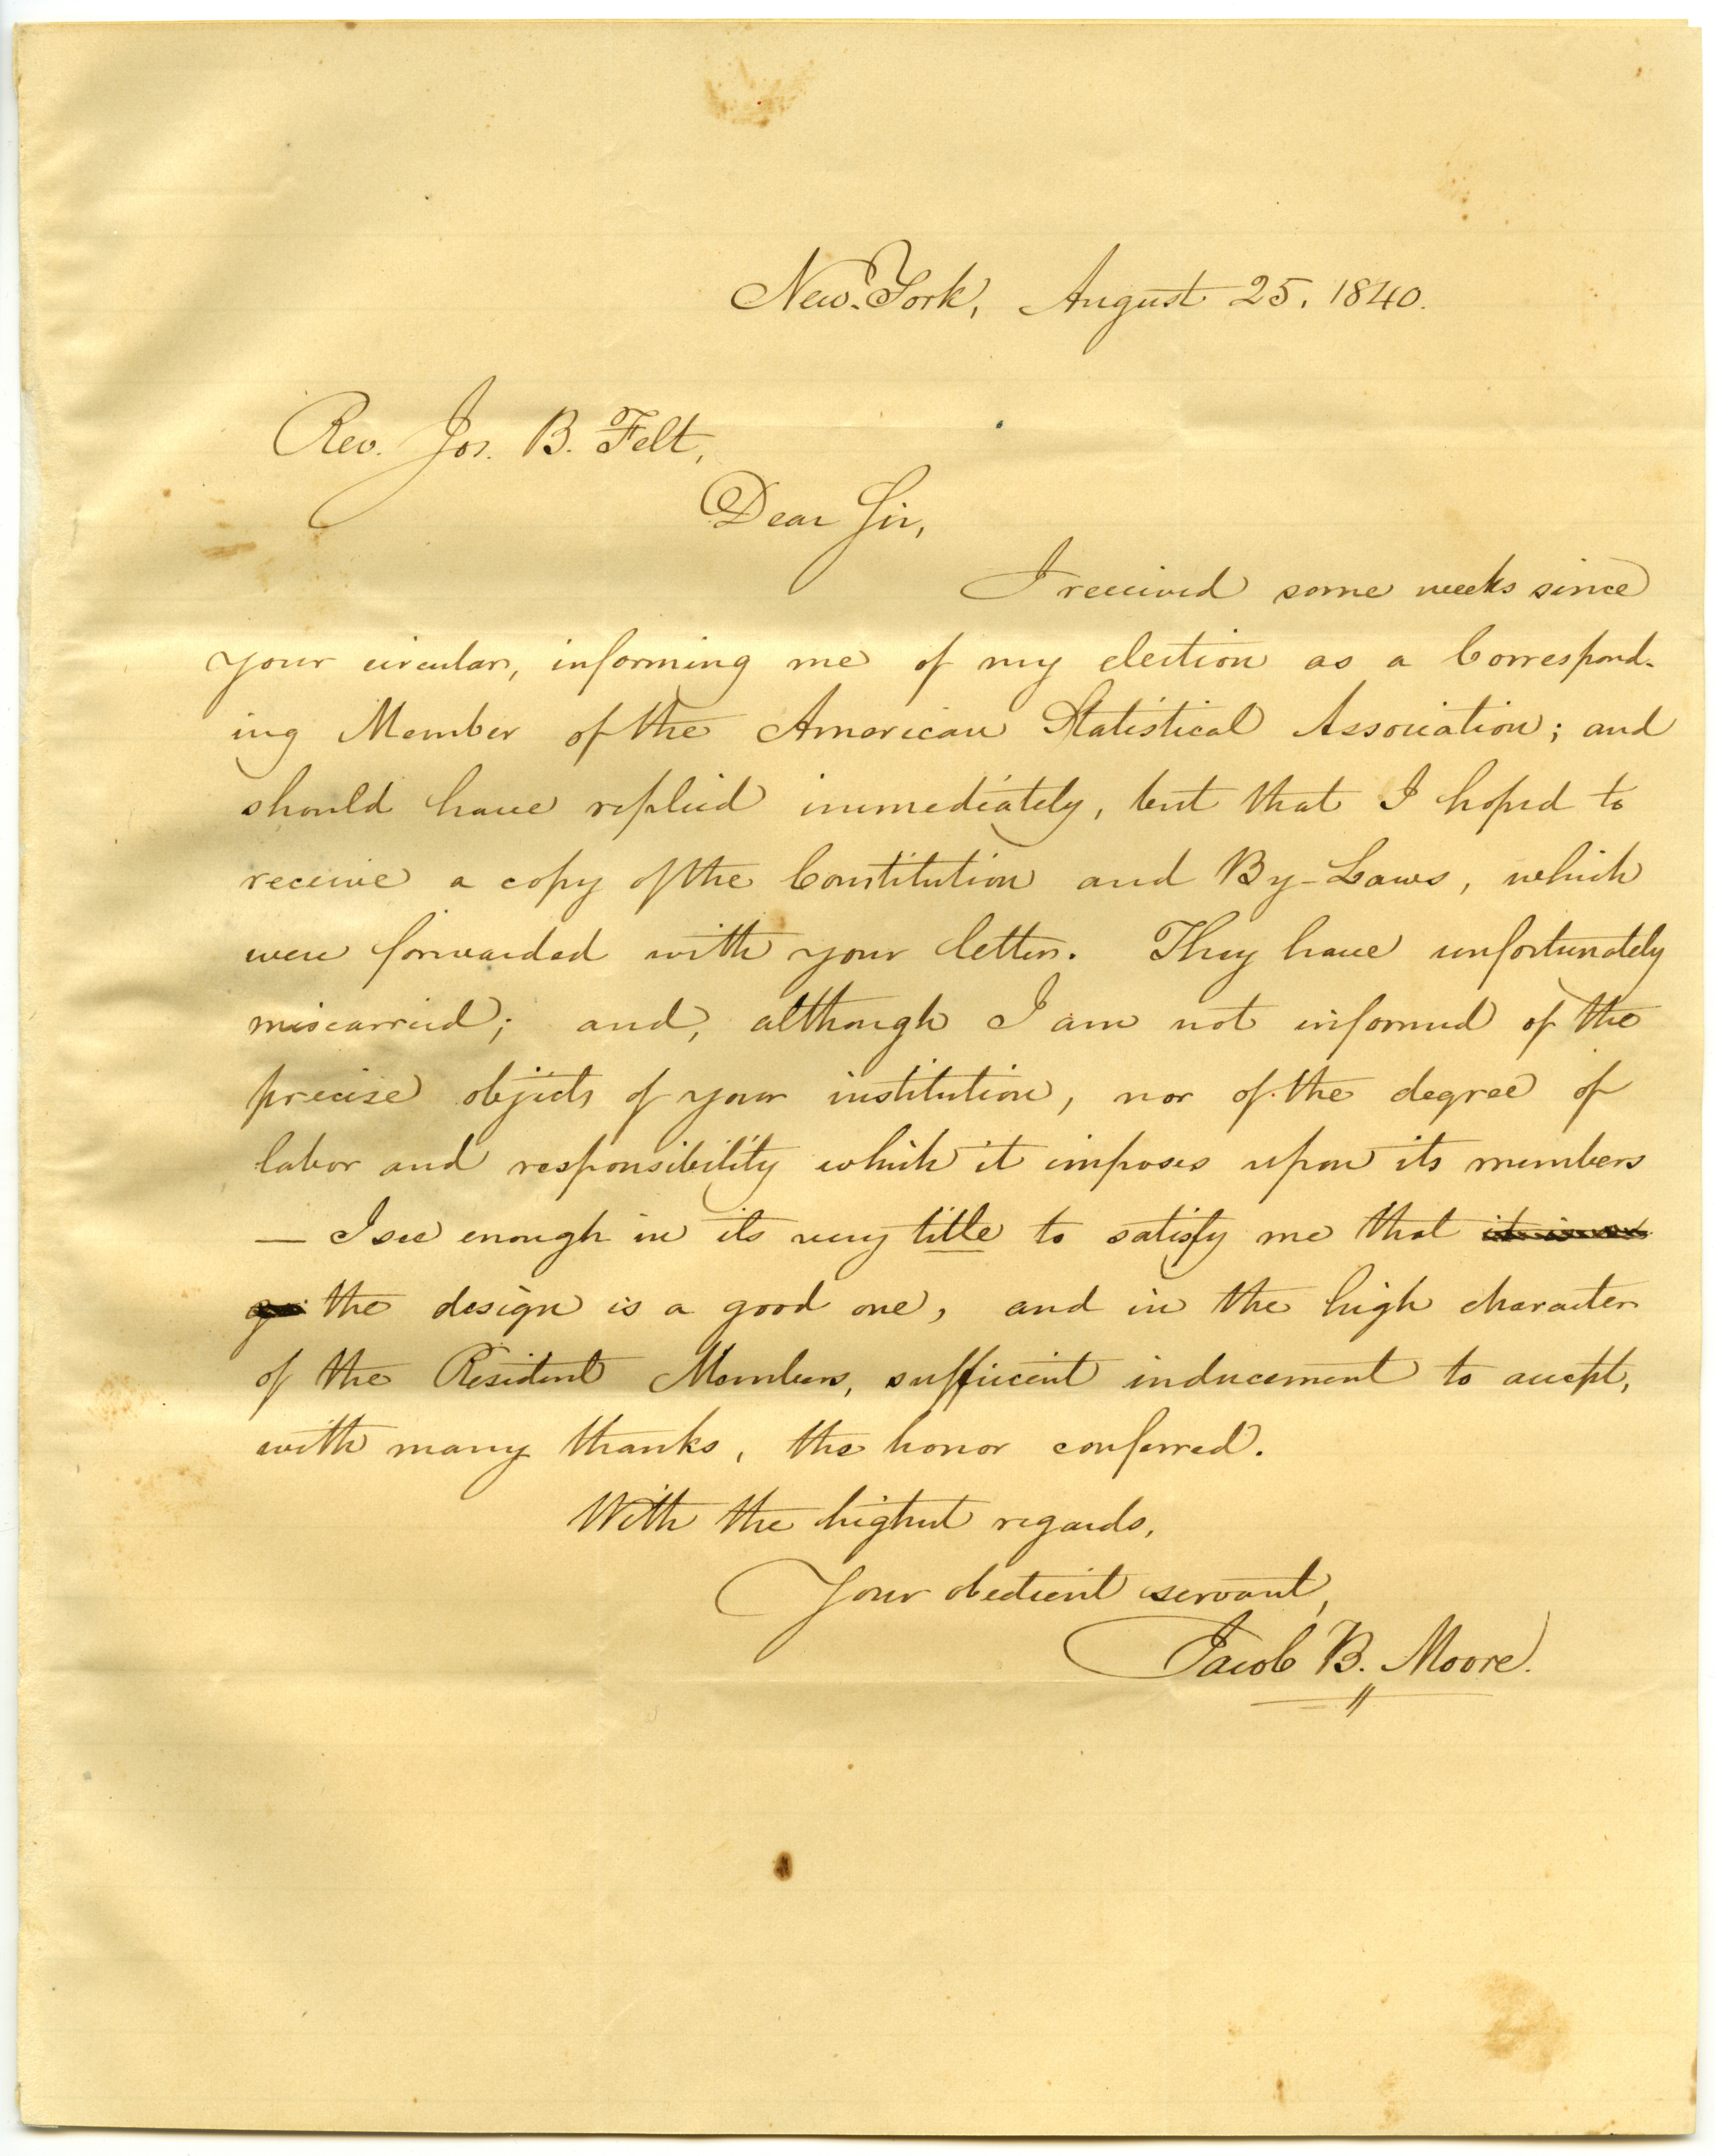 New-York, August 25. 1840.
Rev. Jos. B. Felt,
Dear Sir,
I received some weeks since
your circular, informing me of my election as a Correspond-
ing Member of the American Statistical Association; and
should have replied immediately, but that I hoped to
receive a copy of the Constitution and By-Laws, which
were forwarded with your letter. They have unfortunately
miscarried; and, although I am not informed of the
precise objects of your institution, nor of the degree of
labor and responsibility which it imposes upon its members
— I see enough in its very title to satisfy me that
the design is a good one, and in the high character
of the Resident Members, sufficient inducement to accept,
with many thanks, the honor conferred.
With the highest regards,
Your obedient servant,
Jacob B. Moore.